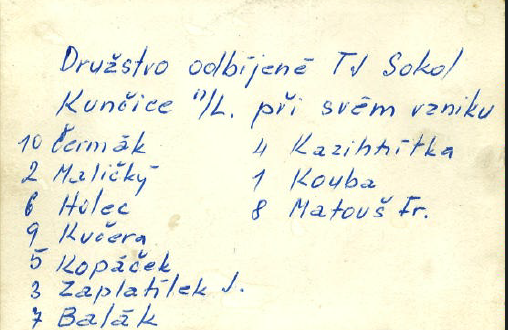 Družstvo odbíjené TJ Sokol
Kunčice n/L. při svém vzniku
10 Čermák
2 Maličký
6 Holec
9 Kučera
5 Kopáček
3 Zaplatílek J.
7 Balák
4 Kazihnítka
1 Kouba
8 Matouš Fr.